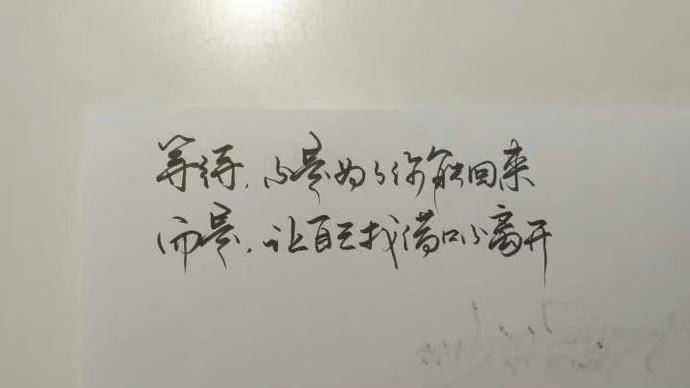 等待，不是为了你能回来
而是，让自己找借口不离开